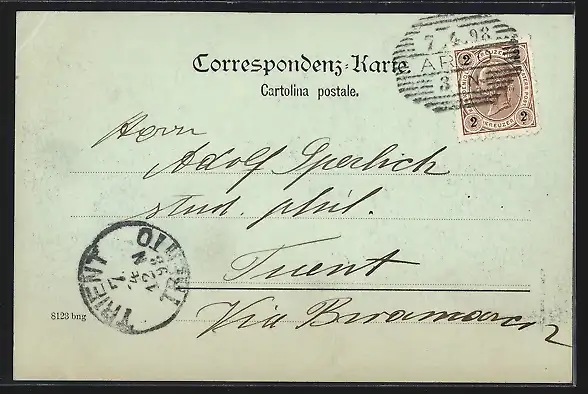 Correspondenz-Karte
Cartolina postale.
7.4.98
ARCO
2 2
KREUZER
Herrn
Adolf Sperlich
stud. phil.
Trient
Via
TRIENT
8123 bng